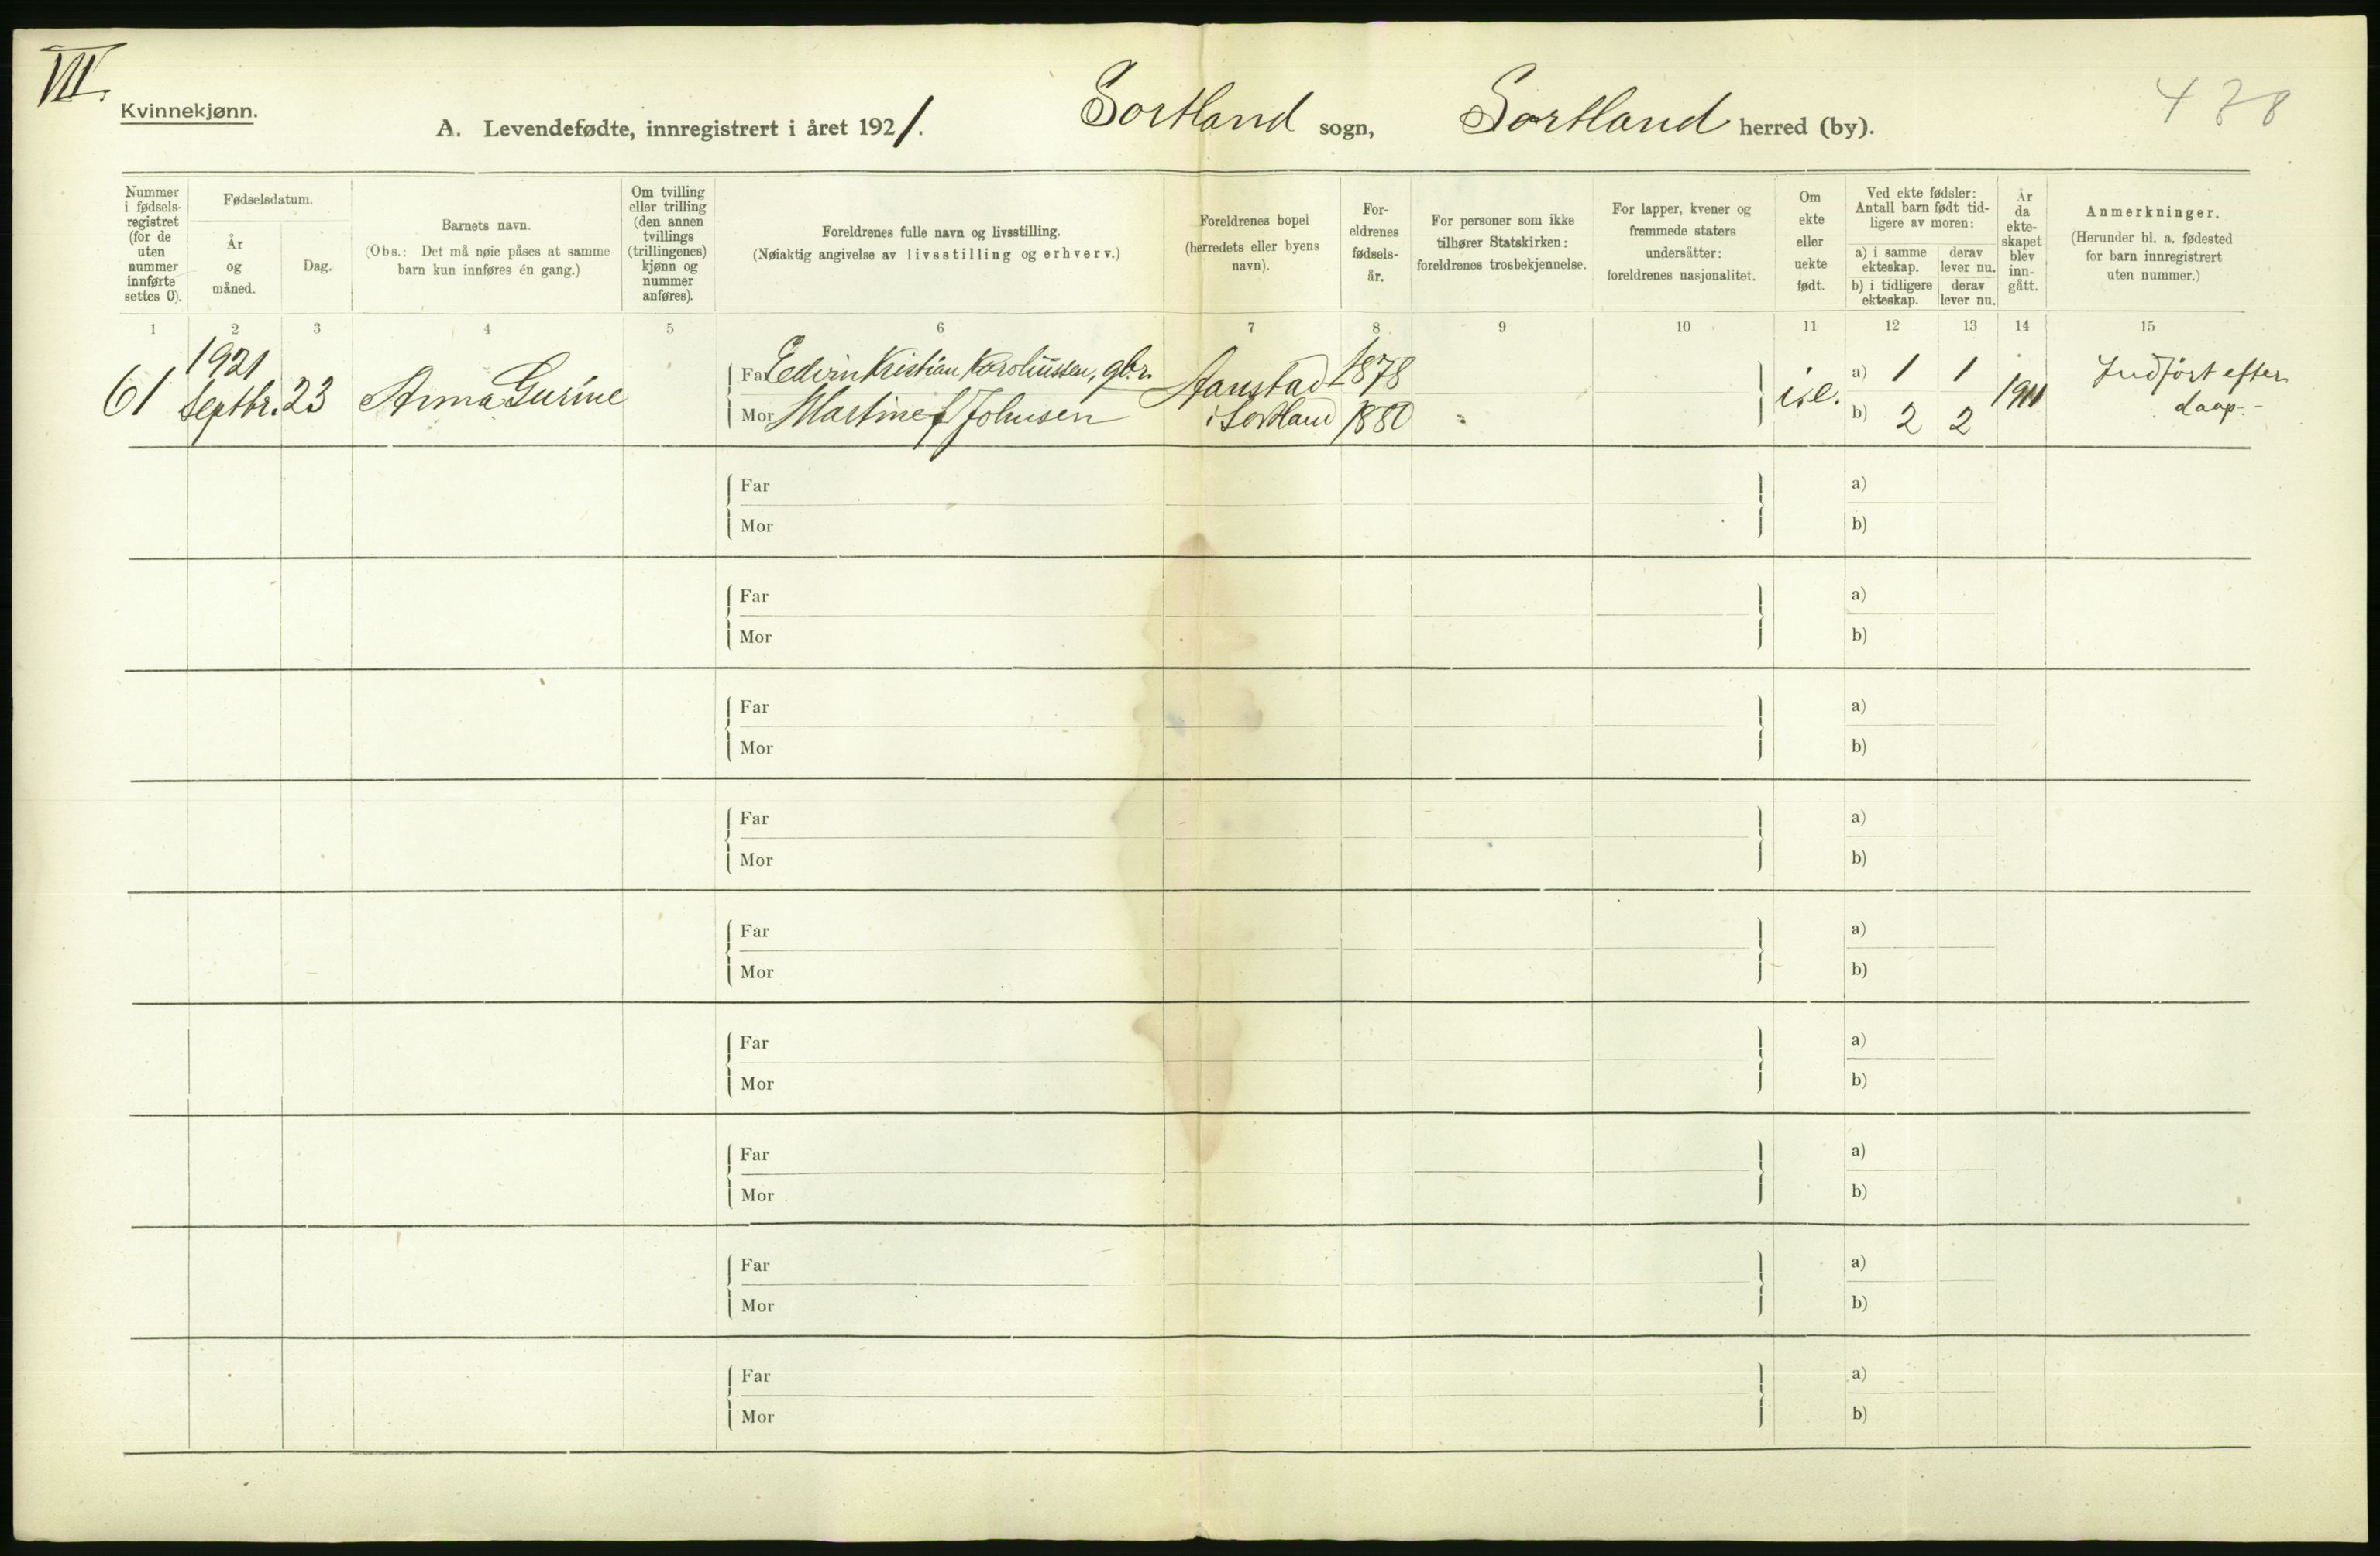 VII.
Kvinnekjønn.
A. Levendefødte, innregistrert i året 1921. Sortland sogn, Sortland herred (by).
Nummer i fødsels-registret (for de uten nummer innførte settes 0).
Fødselsdatum.
År og måned.
Dag.
Barnets navn.
(Obs.: Det må nøie påses at samme barn kun innføres én gang.)
Om tvilling eller trilling (den annen tvillings (trillingenes) kjønn og nummer anføres).
Foreldrenes fulle navn og livsstilling.
(Nøiaktig angivelse av livsstilling og erhverv.)
Foreldrenes bopel (herredets eller byens navn).
For-eldrenes fødsels-år.
For personer som ikke tilhører Statskirken: foreldrenes trosbekjennelse.
For lapper, kvener og fremmede staters undersåtter: foreldrenes nasjonalitet.
Om ekte eller uekte født.
Ved ekte fødsler: Antall barn født tid-ligere av moren:
a) i samme ekteskap.
derav lever nu.
b) i tidligere ekteskap.
derav lever nu.
År da ekte-skapet blev inn-gått.
Anmerkninger.
(Herunder bl. a. fødested for barn innregistrert uten nummer.)
1 2 3 4 5 6 7 8 9 10 11 12 13 14 15
61 1921 Septbr. 23 Anna Gurine
Far Edvin Kristian Karoliussen, gbr. Aanstad 1878
Mor Martine Johnsen i Sortland 1880
i.e. a) 1 1 1911 Indført efter
b) 2 2 daap.-
Far a)
Mor b)
Far a)
Mor b)
Far a)
Mor b)
Far a)
Mor b)
Far a)
Mor b)
Far a)
Mor b)
Far a)
Mor b)
Far a)
Mor b)
Far a)
Mor b)